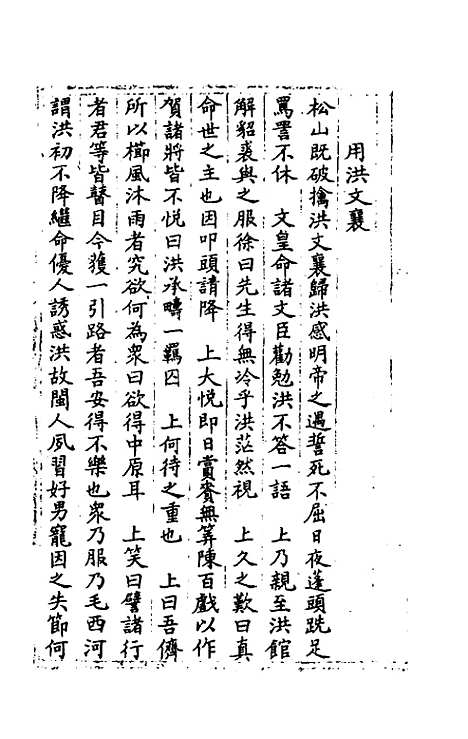 用洪文襄
松山既破擒洪文襄歸洪感明帝之遇誓死不屈日夜蓬頭跣足
罵詈不休　文皇命諸文臣勸勉洪不答一語　上乃親至洪館
解貂裘與之服徐曰先生得無冷乎洪茫然視　上久之歎曰真
命世之主也因叩頭請降　上大悅即日賞賚無筭陳百戲以作
賀諸將皆不悅曰洪承疇一羈囚　上何待之重也　上曰吾儕
所以櫛風沐雨者究欲何為衆曰欲得中原耳　上笑曰譬諸行
者君等皆瞽目今獲一引路者吾安得不樂也衆乃服乃毛西河
謂洪初不降繼命優人誘惑洪故閩人夙習好男寵因之失節何